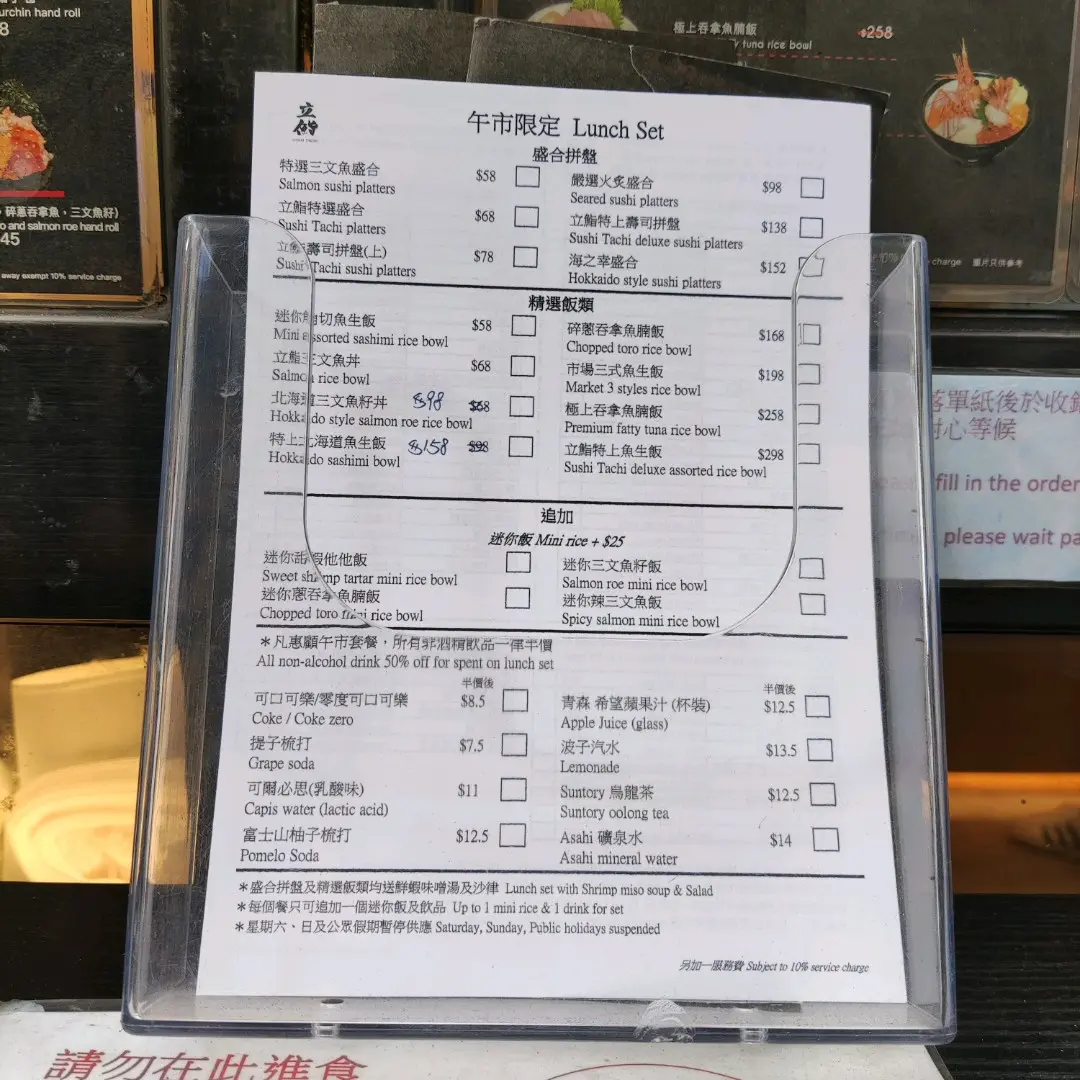 urchin hand roll
8
極上吞拿魚腩飯
y tuna rice bowl
$258
碎蔥吞拿魚,三文魚籽)
o and salmon roe hand roll
45
away exempt 10% service charge
charge 圖片只供參考
立鮨
午市限定 Lunch Set
盛合拼盤
特選三文魚盛合 $58
Salmon sushi platters
立鮨特選盛合 $68
Sushi Tachi platters
立鮨壽司拼盤(上) $78
Sushi Tachi sushi platters
嚴選火炙盛合 $98
Seared sushi platters
立鮨特上壽司拼盤 $138
Sushi Tachi deluxe sushi platters
海之幸盛合 $152
Hokkaido style sushi platters
精選飯類
迷你角切魚生飯 $58
Mini assorted sashimi rice bowl
立鮨三文魚丼 $68
Salmon rice bowl
北海道三文魚籽丼 $98 $68
Hokkaido style salmon roe rice bowl
特上北海道魚生飯 $158 $98
Hokkaido sashimi bowl
碎蔥吞拿魚腩飯 $168
Chopped toro rice bowl
市場三式魚生飯 $198
Market 3 styles rice bowl
極上吞拿魚腩飯 $258
Premium fatty tuna rice bowl
立鮨特上魚生飯 $298
Sushi Tachi deluxe assorted rice bowl
追加
迷你飯 Mini rice + $25
迷你甜蝦他他飯
Sweet shrimp tartar mini rice bowl
迷你蔥吞拿魚腩飯
Chopped toro mini rice bowl
迷你三文魚籽飯
Salmon roe mini rice bowl
迷你辣三文魚飯
Spicy salmon mini rice bowl
*凡惠顧午市套餐,所有非酒精飲品一律半價
All non-alcohol drink 50% off for spent on lunch set
半價後
可口可樂/零度可口可樂 $8.5
Coke / Coke zero
提子梳打 $7.5
Grape soda
可爾必思(乳酸味) $11
Capis water (lactic acid)
富士山柚子梳打 $12.5
Pomelo Soda
半價後
青森 希望蘋果汁 (杯裝) $12.5
Apple Juice (glass)
波子汽水 $13.5
Lemonade
Suntory 烏龍茶 $12.5
Suntory oolong tea
Asahi 礦泉水 $14
Asahi mineral water
*盛合拼盤及精選飯類均送鮮蝦味噌湯及沙律 Lunch set with Shrimp miso soup & Salad
*每個餐只可追加一個迷你飯及飲品 Up to 1 mini rice & 1 drink for set
*星期六、日及公眾假期暫停供應 Saturday, Sunday, Public holidays suspended
另加一服務費 Subject to 10% service charge
落單紙後於收銀
耐心等候
fill in the order
please wait pa
請勿在此進食